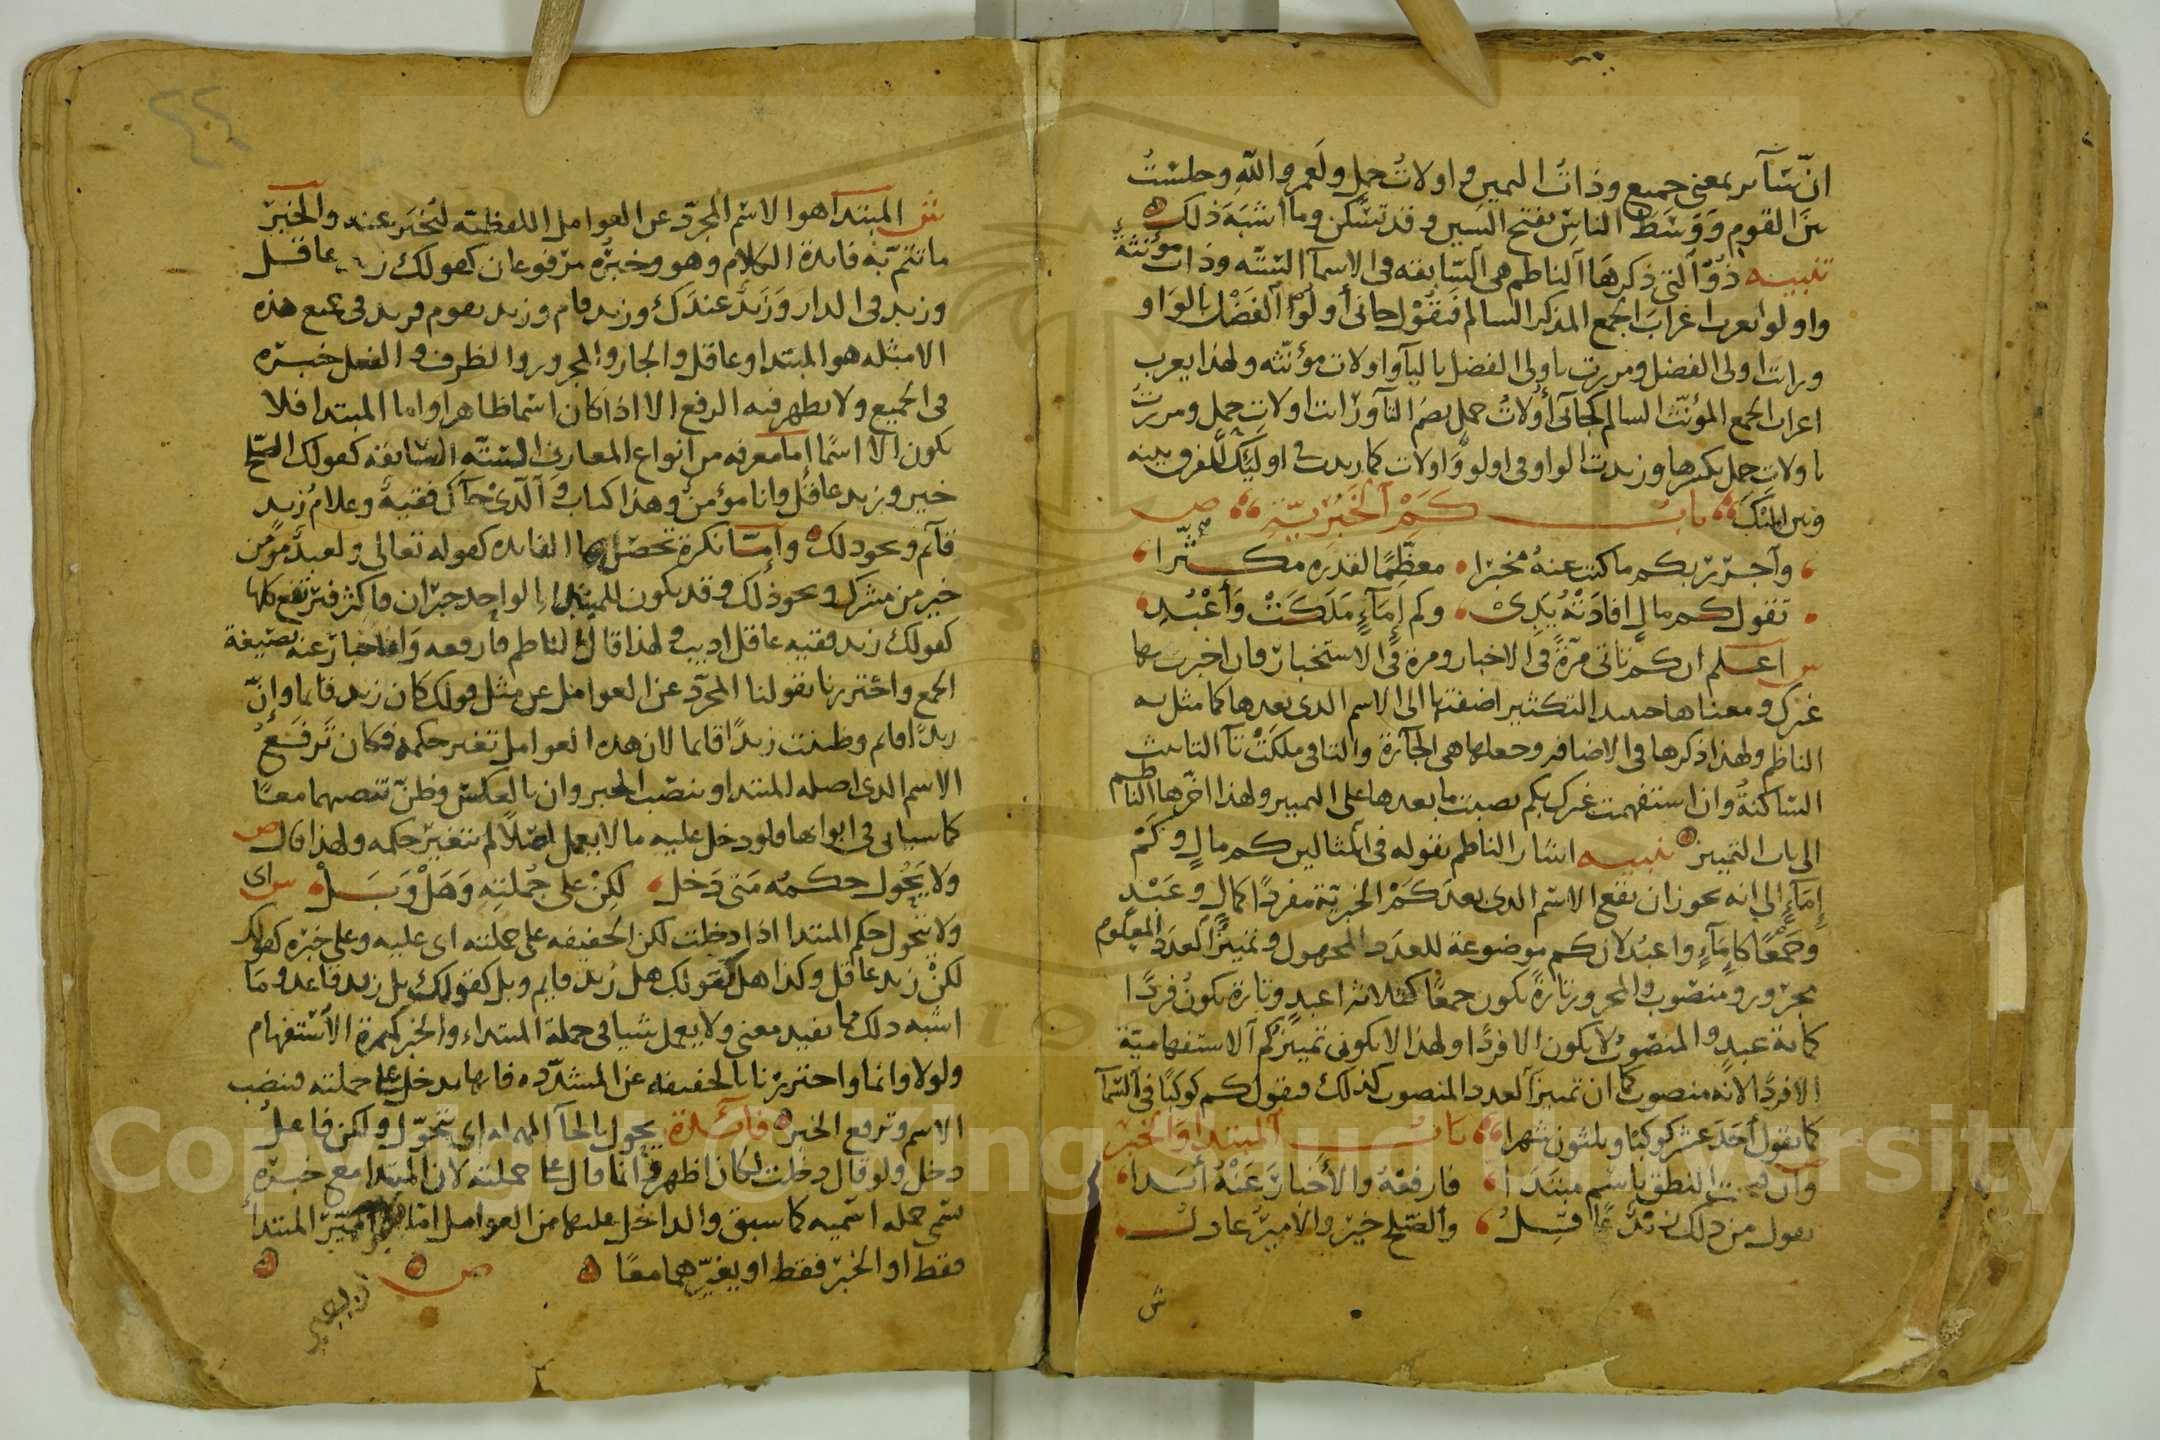 ان سآىر بمعنى جميع وذات اليمين واولات حمل ولعمر والله وجلست
بين القوم ووسط الناس بفتح السين وقد تسكن وما اشبه ذلك
تنبيه ذو التي ذكرها الناظم هي السابقه في الاسمآ الستّه وذات مؤنثة
واولوا يعرب اعراب الجمع المذكر السالم فتقول جاني أولوا الفضل بالواو
ورايت اولى الفضل ومررت باولى الفضل باليآ واولات مؤنثه ولهذا يعرب
اعراب الجمع المؤنث السالم كجآني أولات حمل بضم التآ ورايت اولات حمل ومررت
باولات حمل بكسرها وزيدت الواو في اولو واولات كما زيدت في اوليك للفرق بينه
وبين اليك باب كم الخبريّة ص
واجرر بكم ما كنت عنه مخبرا معظّما لقدره مكثّرا
تقول كم مال افادته يدى وكم إمآءٍ ملكت وأعبد
س اعلم ان كم تاتى مرّة في الاخبار ومرة في الاستخبار فان اخبرت بها
غيرك ومعناها حينيد التكثير اضفتها الى الاسم الدى بعدها كما مثل به
الناظم ولهذا ذكرها في الاضافه وجعلها هى الجآرة والتا في ملكت تآ التانيث
الساكنة وان استفهمت غيرك بكم نصبت ما بعدها على التمييز ولهذا اخّرها الناظم
الى باب التمييز تنبيه اشار الناظم بقوله في المثالين كم مال وكم
إمآءٍ الي انه يجوز ان يقع الاسم الدى بعد كم الخبريّة مفردًا كمال وعبد
وجمعًا كإمآءٍ واعبد لان كم موضوعة للعدد المجهول وتمييز العدد المعلوم
مجرور ومنصوب والمجرور تارة يكون جمعًا كثلاثة اعبد وتارة يكون فردًا
كماىة عبدٍ والمنصوب لا يكون الا فردًا ولهذا لا يكون تمييز كم الاستفهاميّة
الا فردًا لانه منصوب كما ان تمييز العدد المنصوب كذلك فتقول كم كوكبًا في السمآ
كما تقول أحد عشر كوكبًا وثلثون شهرا باب المبتدا والخبر
ص وان فتحت النطق باسم مبتدا فارفعه والأخبار عنه أبدا
تقول من ذلك زيد عاقل والصّلح خير والامير عادل
ش
ش المبتدا هو الاسم المجرّد عن العوامل اللفظيّه ليُخبَر عنه والخبر
ما تتمّ به فايدة الكلام وهو وخبره مرفوعان كقولك زيد عاقل
وزيد في الدار وزيد عندك وزيد قام وزيد يقوم فزيد في جميع هذه
الامثله هو المبتدا وعاقل والجار والمجرور والظرف والفعل خبره
في الجميع ولا يظهر فيه الرفع الا اذا كان اسما ظاهرا واما المبتدا فلا
يكون الا اسمًا إما معرفه من انواع المعارف الستّه السّابقه كقولك الصلح
خير وزيد عاقل وانا مؤمن وهذا كتاب والّذى جآك فقيه وغلام زيد
قآىم ونحو ذلك وإمّا نكرة تحصل بها الفايده كقوله تعالى ولعبد مؤمن
خير من مشرك ونحو ذلك وقد يكون للمبتدا الواحد خبران فاكثر فترتفع كلها
كقولك زيد فقيه عاقل اديب ولهذا قال الناظم فارفعه والاخبار عنه بصيغة
الجمع واحترزنا بقولنا المجرّد عن العوامل عن مثل قولك كان زيد قايما وإنّ
زيدًا قايم وظننت زيدًا قايما لان هذه العوامل تغير حكمه فكان ترفع
الاسم الدى اصله المبتدا وينصب الخبر وان بالعكس وظنّ تنصبهما معًا
كما سياتى في ابوابها فلو دخل عليه ما لا يعمل اصلاً لم يتغير حكمه ولهذا قال ص
ولا يحول حكمه متى دخل لكن على جملته وهل وبل س اى
ولا يتحول حكم المبتدا اذا دخلت لكن الخفيفه على جملته اى عليه وعلى خبره كقولك
لكن زيد عاقل وكذا هل كقولك هل زيد قايم وبل كقولك بل زيد قاعد وما
اشبه ذلك مما يفيد معنى ولا يعمل شيا في جملة المبتداء والخبر كهمزة الاستفهام
ولولا وانما واحترزنا بالخفيفه عن المشدّده فانها تدخل على جملته فتنصب
الاسم وترفع الخبر فآىدة يحول بالحآ المهمله اى يتحوّل ولكن فاعل
دخل ولو قال دخلت لكان اظهر وانما قال على جملته لان المبتدا مع خبره
يسمى جمله اسميه كما سبق والداخل عليها من العوامل امّا يغير المبتدأ
فقط او الخبر فقط او يغيّرهما معًا ص